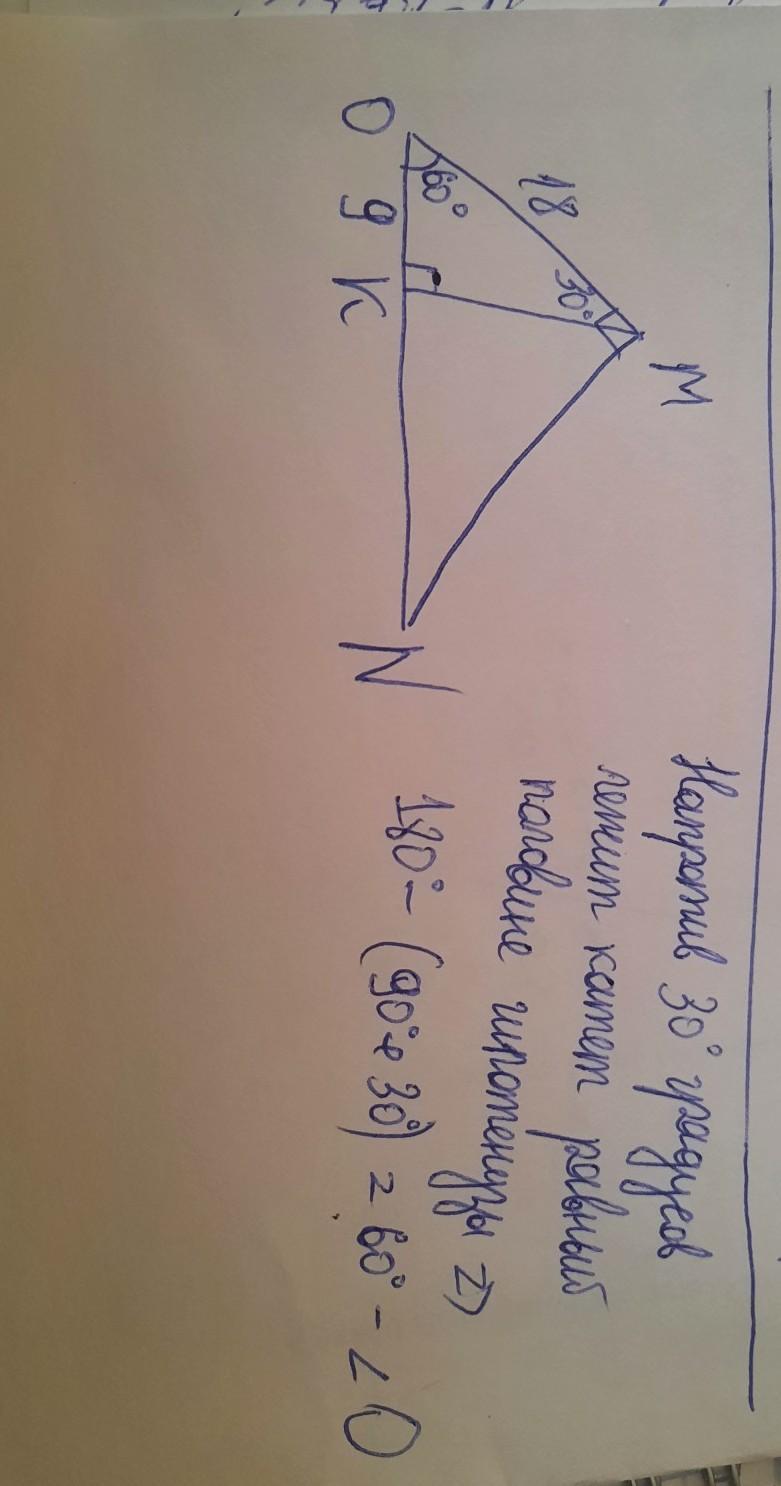 M
18
30°
60°
O 9 K N
Напротив 30° градусов
лежит катет равный
половине гипотенузы =>
180° - (90° + 30°) = 60° - ∠O